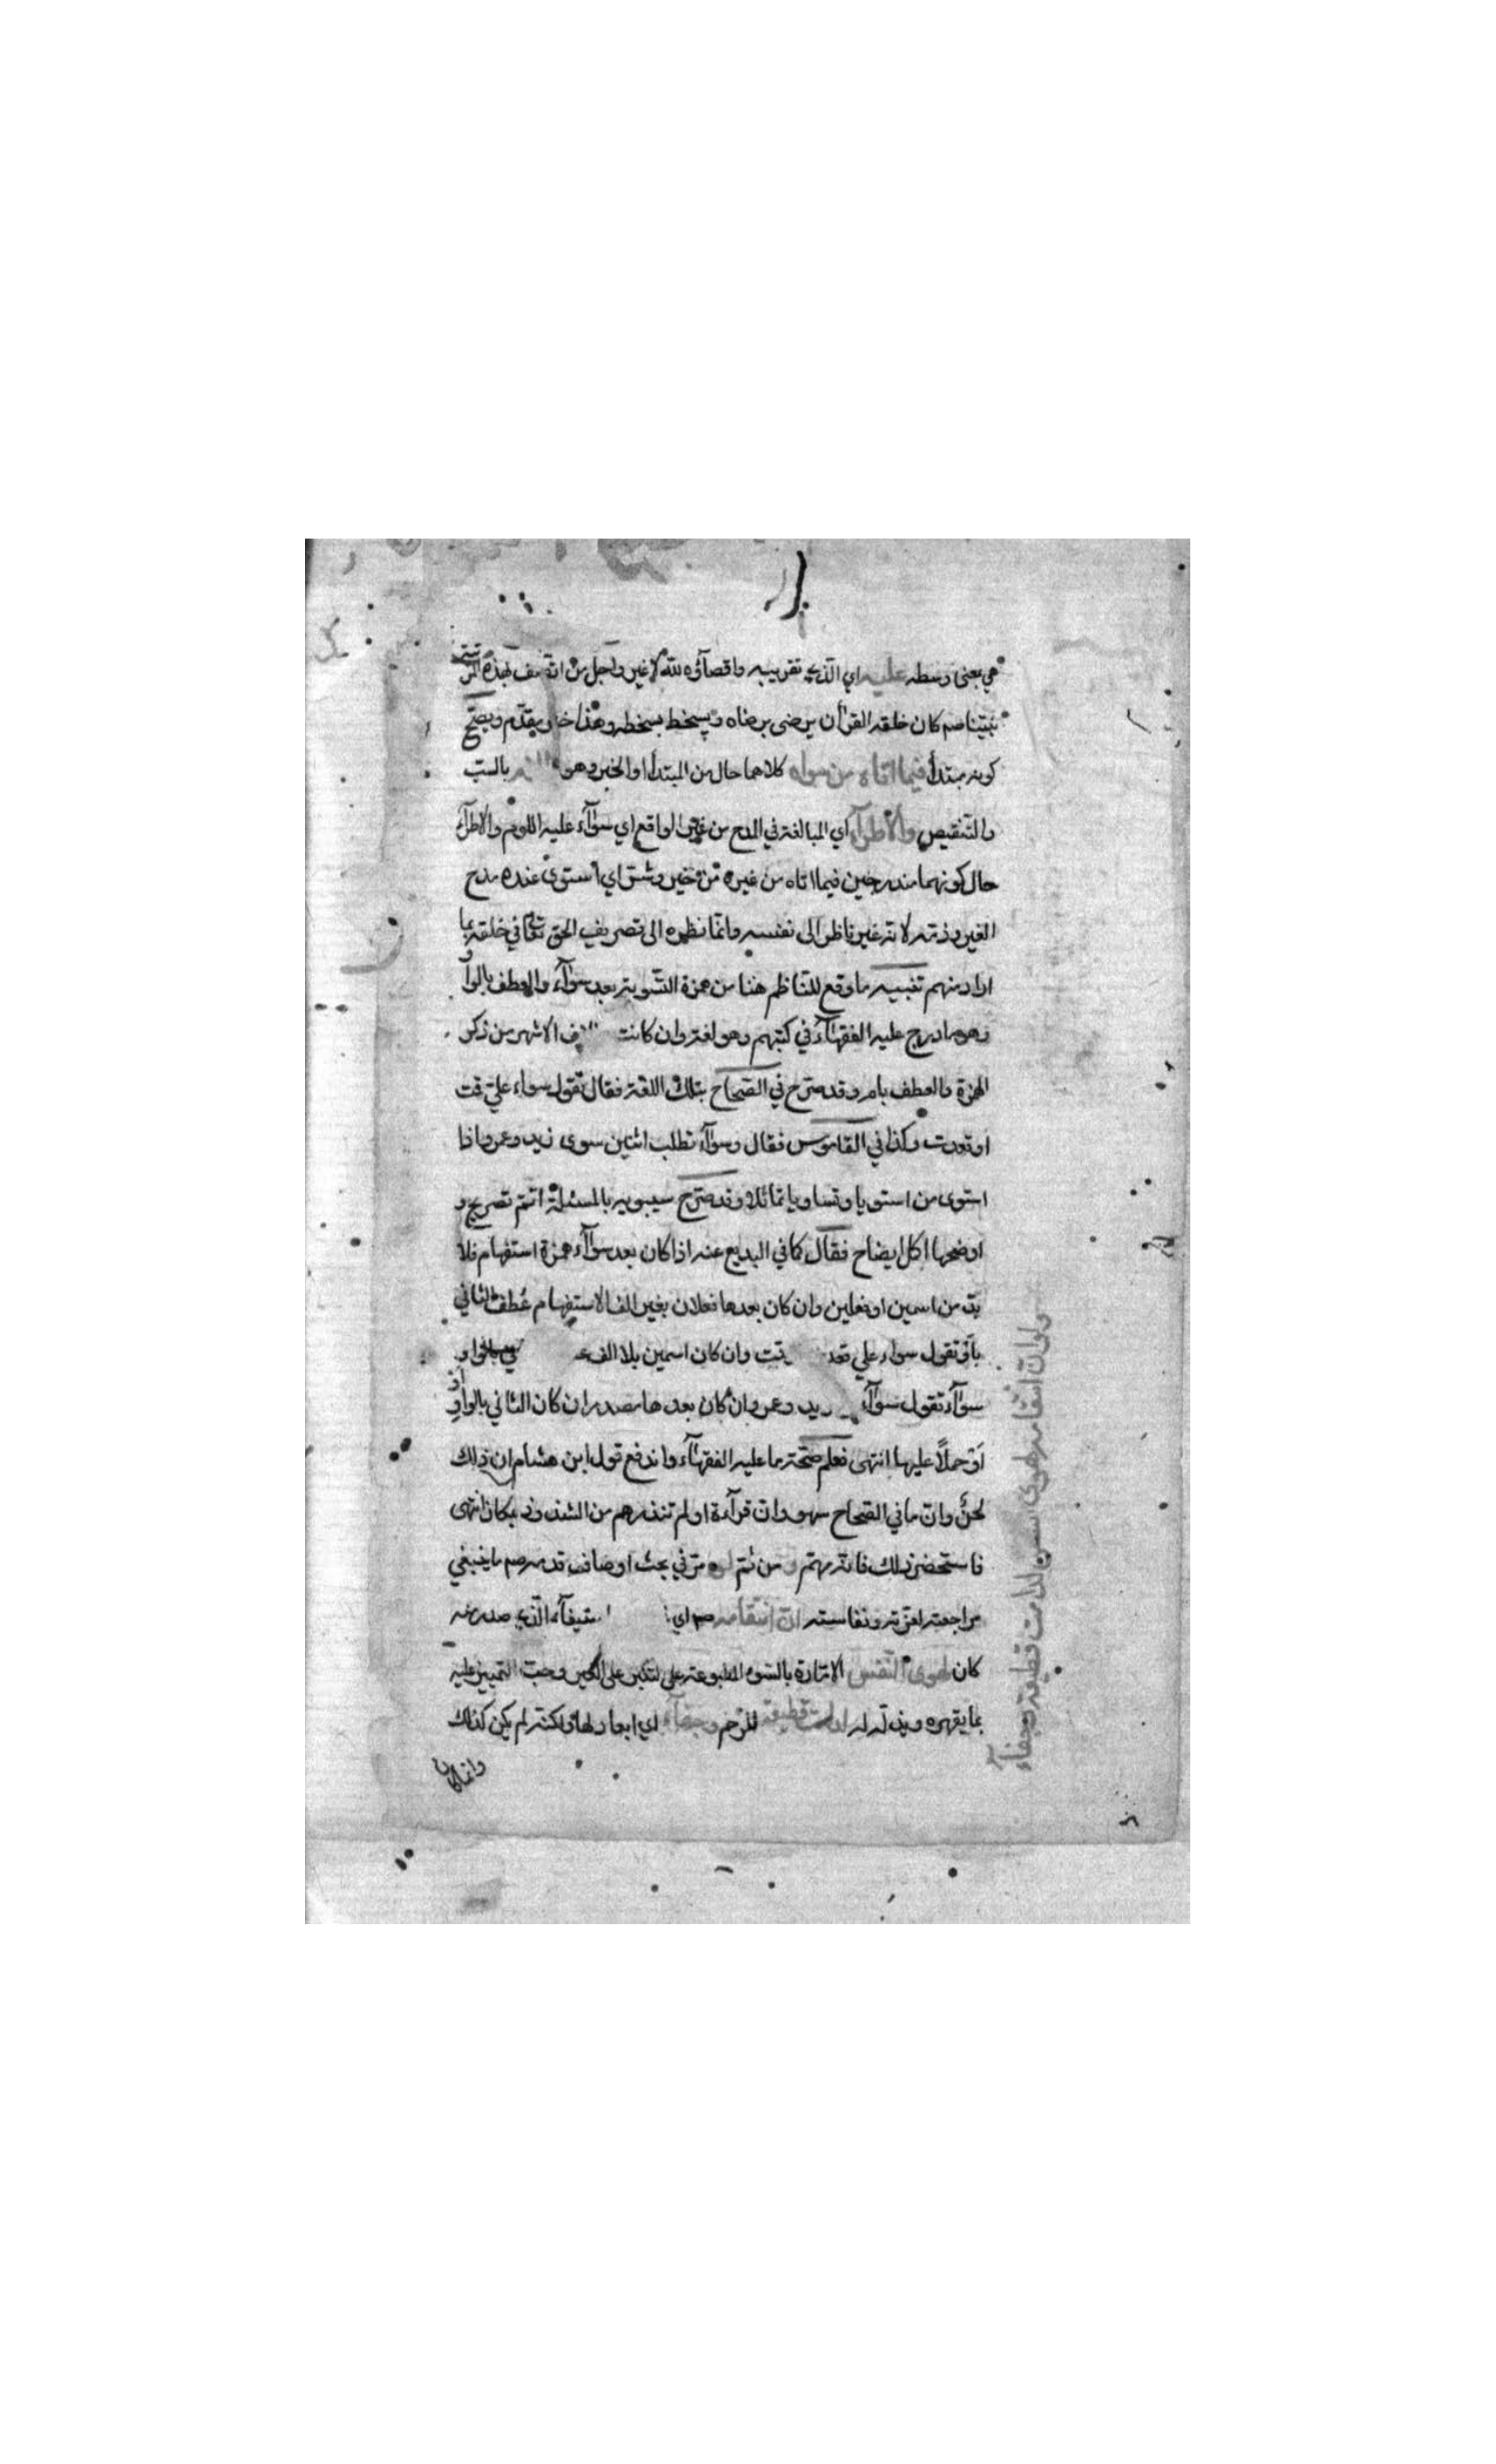 هي بمعنى وسطه عليه اي الذي تقريبه واقصاؤه لله لا غير واجل من اتصف بهذه المرتبتة
نبينا صم كان خلقه القرأن يرضى برضاه ويسخط بسخطه وهذا خبر مقدم ويصح
كونه مبتدأ فيما اتاه من سواه كلاهما حال من المبتدأ او الخبر وهو بالسب
والتنقيص والاطرآء اي المبالغة في المدح من غير الواقع اي سوآء عليه اللوم والاطرآء
حال كونهما مندرجين فيما اتاه من غيره من خير وشر اي استوى عنده مدح
الغير وذمه لانه غير ناظر الى نفسه وانما نظره الى تصريف الحق تعالى في خلقه بما
اراد منهم تنبيه ما وقع للناظم هنا من همزة التسوية بعد سوآء والعطف بالواو
وهو ما درج عليه الفقهآء في كتبهم وهو لغة وان كانت الاشهر من ذكر
الهمزة والعطف بام وقد صرح في الصحاح بتلك اللغة فقال تقول سواء علي قمت
او قعدت وكذا في القاموس فقال وسوآء تطلب اثنين سوى زيد وعمرو اذا
استوى من استويا وتساويا تماثلا وقد صرح سيبويه بالمسئلة اتم تصريح و
اوضحها اكل ايضاح فقال كما في البديع عنه اذا كان بعد سوآء همزة استفهام فلا
بد من اسمين او فعلين وان كان بعدها فعلان بغير الف الاستفهام عطف الثاني
باو تقول سواء علي قمت وان كان اسمين بلا الف بالواو
سوآء تقول سوآء زيد وعمرو وان كان بعدها مصدران كان الثاني بالواو او
او حملا عليها انتهى فعلم صحة ما عليه الفقهآء واندفع قول ابن هشام ان ذلك
لحن وان ما في الصحاح سهو وان قرآءة او لم تنذرهم من الشذوذ بمكان انتهى
فاستحضر ذلك فانه مهم ومن ثم مر في بحث اوصاف قدمه صم ما ينبغي
مراجعته لعزته ونفاسته ان انتقامه صم اي استيفآء الذي صدر منه
كان لهوى النفس الامارة بالسوء المطبوعة على التكبر على الغير وحب التمييز عليه
بما يقهره ويذله له لدامت قطيعة للرحم وجفآء اي ابعاد لها ولكنه لم يكن كذلك
وانما كان
ولو ان انتقامه لهوى النفس لدامت قطيعة وجفآء